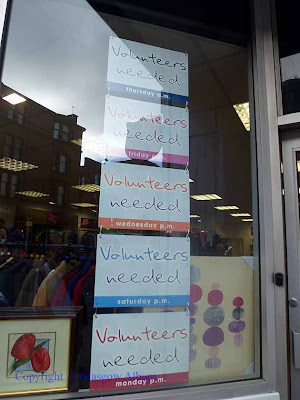 Volunteers
needed
thursday p.m.
Volunteers
needed
friday p.m.
Volunteers
needed
wednesday p.m.
Volunteers
needed
saturday p.m.
Volunteers
needed
monday p.m.
Copyright Glasgow Album